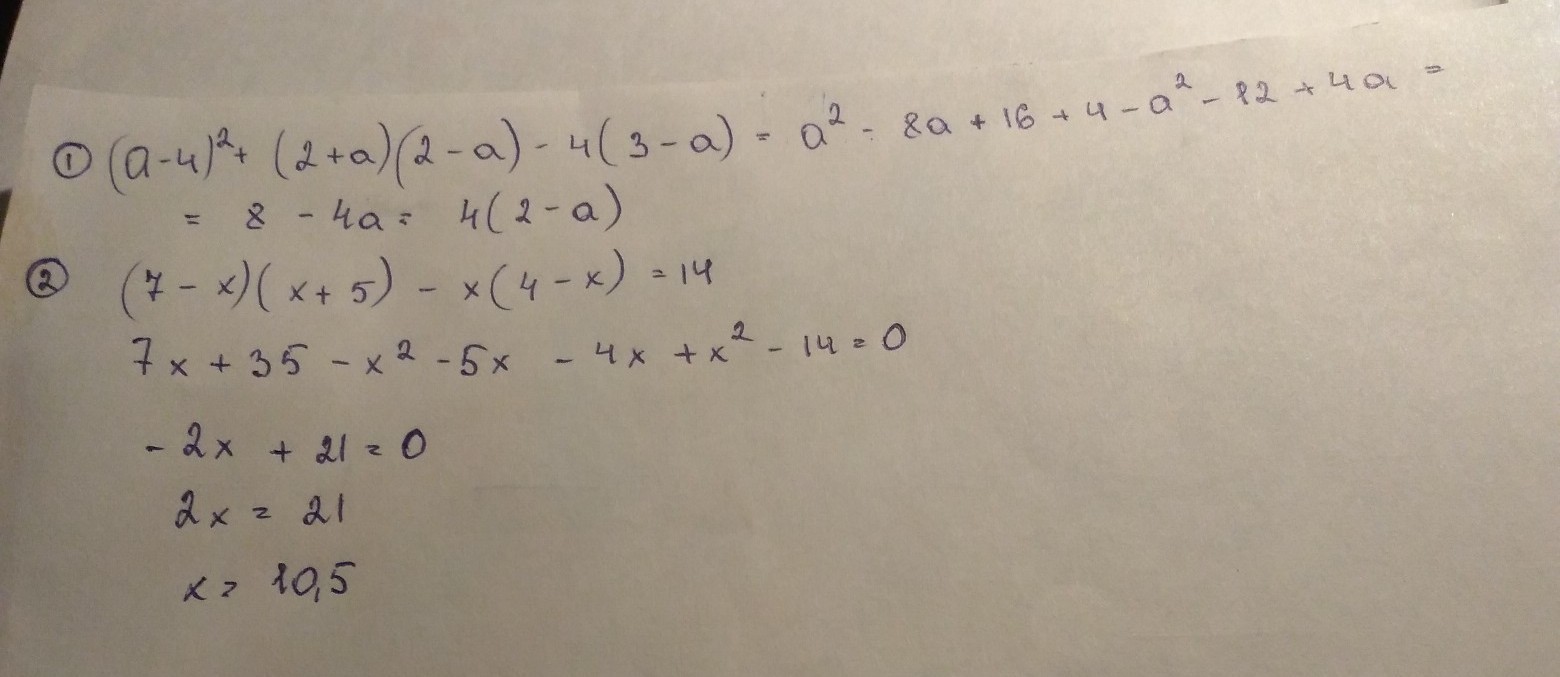 ① (a-4)²+ (2+a)(2-a) - 4(3-a) = a² - 8a + 16 + 4 - a² - 12 + 4a =
= 8 - 4a = 4(2-a)
② (7-x)(x+5) - x(4-x) = 14
7x + 35 - x² - 5x - 4x + x² - 14 = 0
- 2x + 21 = 0
2x = 21
x = 10,5